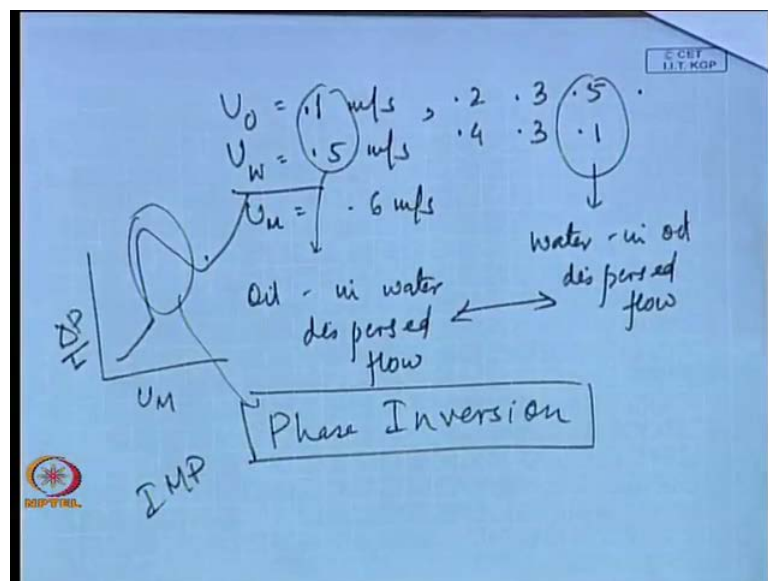 © CET
I.I.T. KGP
U_O = .1 m/s , .2 .3 .5 .
U_W = .5 m/s .4 .3 .1
U_M = .6 m/s
Oil - in water
dispersed
flow
water - in oil
dispersed
flow
ΔP/L
U_M
Phase Inversion
IMP
NPTEL